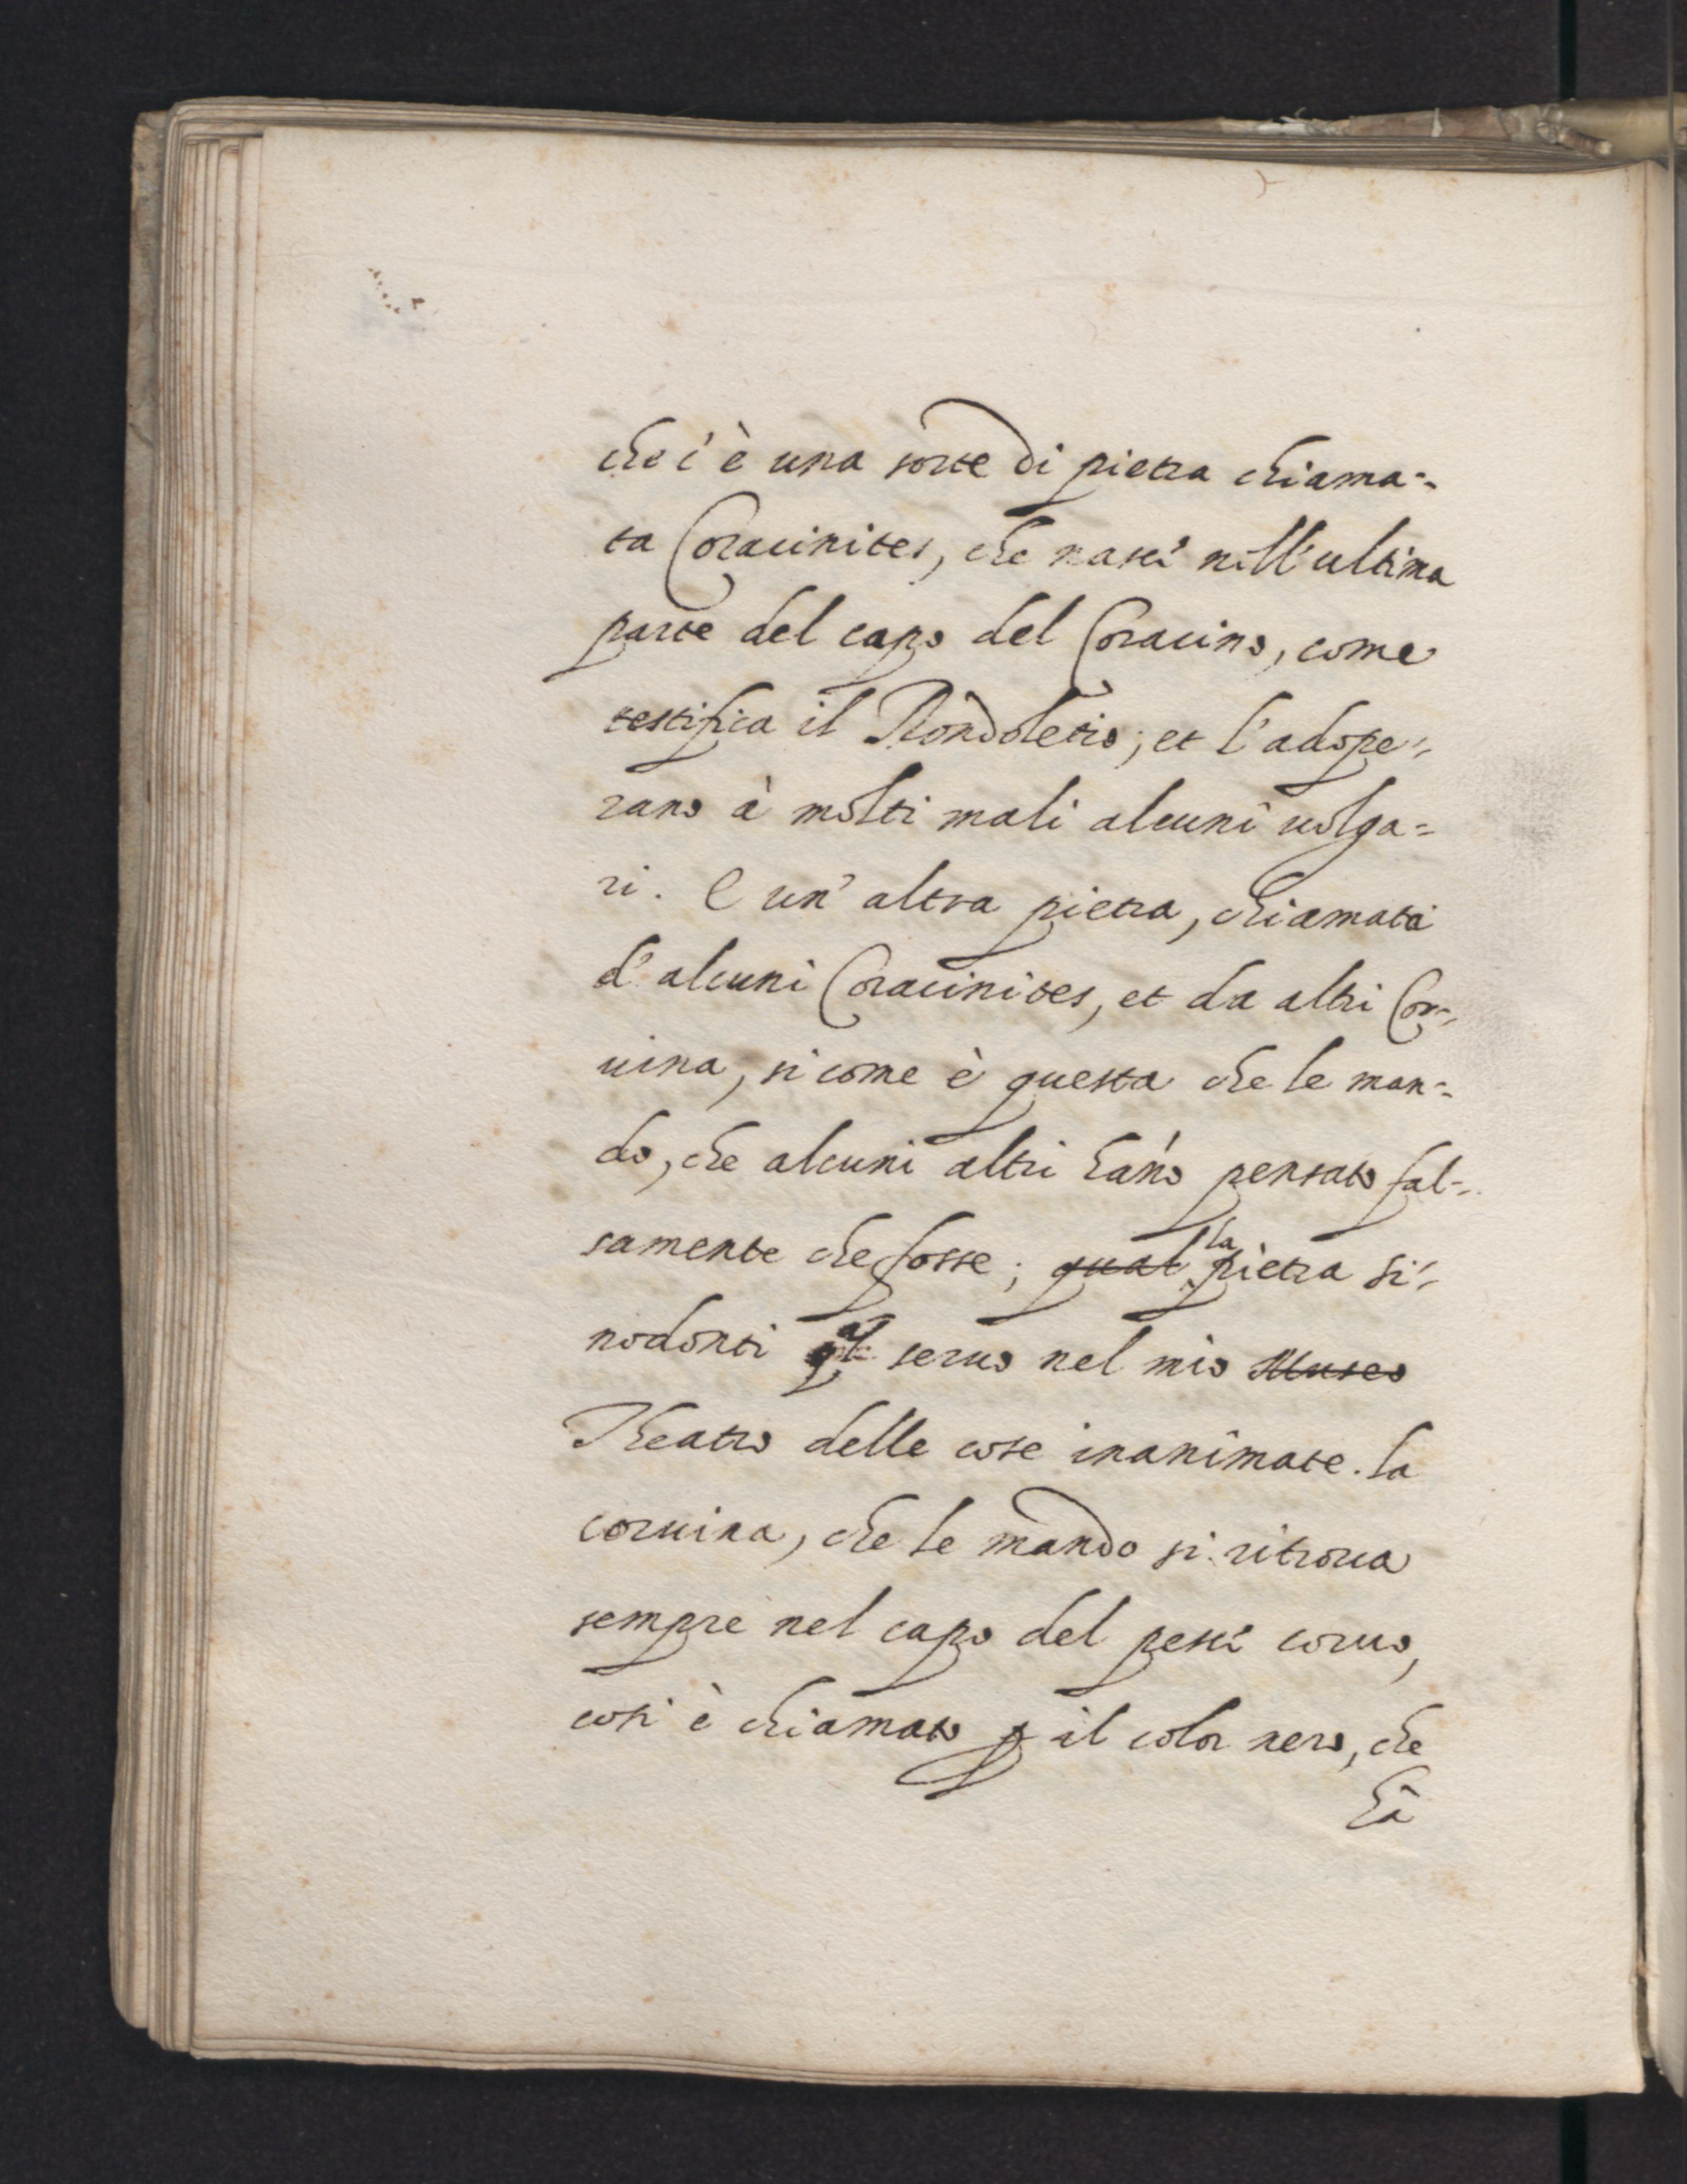 che c'è una sorte di pietra chiama-
ta Coracinites, che nasce nell'ultima
parte del capo del Coracino, come
testifica il Rondoletio; et l'adope-
rano à molti mali alcuni uolga-
ri. E un'altra pietra, chiamata
d'alcuni Coracinites, et da altri Cor-
uina, si come è questa che le man-
do, che alcuni altri hano pensato fal-
samente che fosse; qual la pietra si-
nodonti qual seruo nel mio Museo
Theatro delle cose inanimate. la
coruina, che le mando si ritroua
sempre nel capo del pesce coruo,
cosi è chiamato p il color nero, che
hà